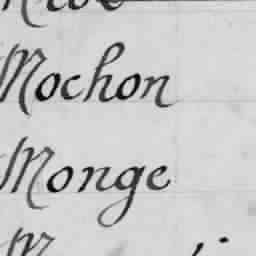 Mochon
Monge